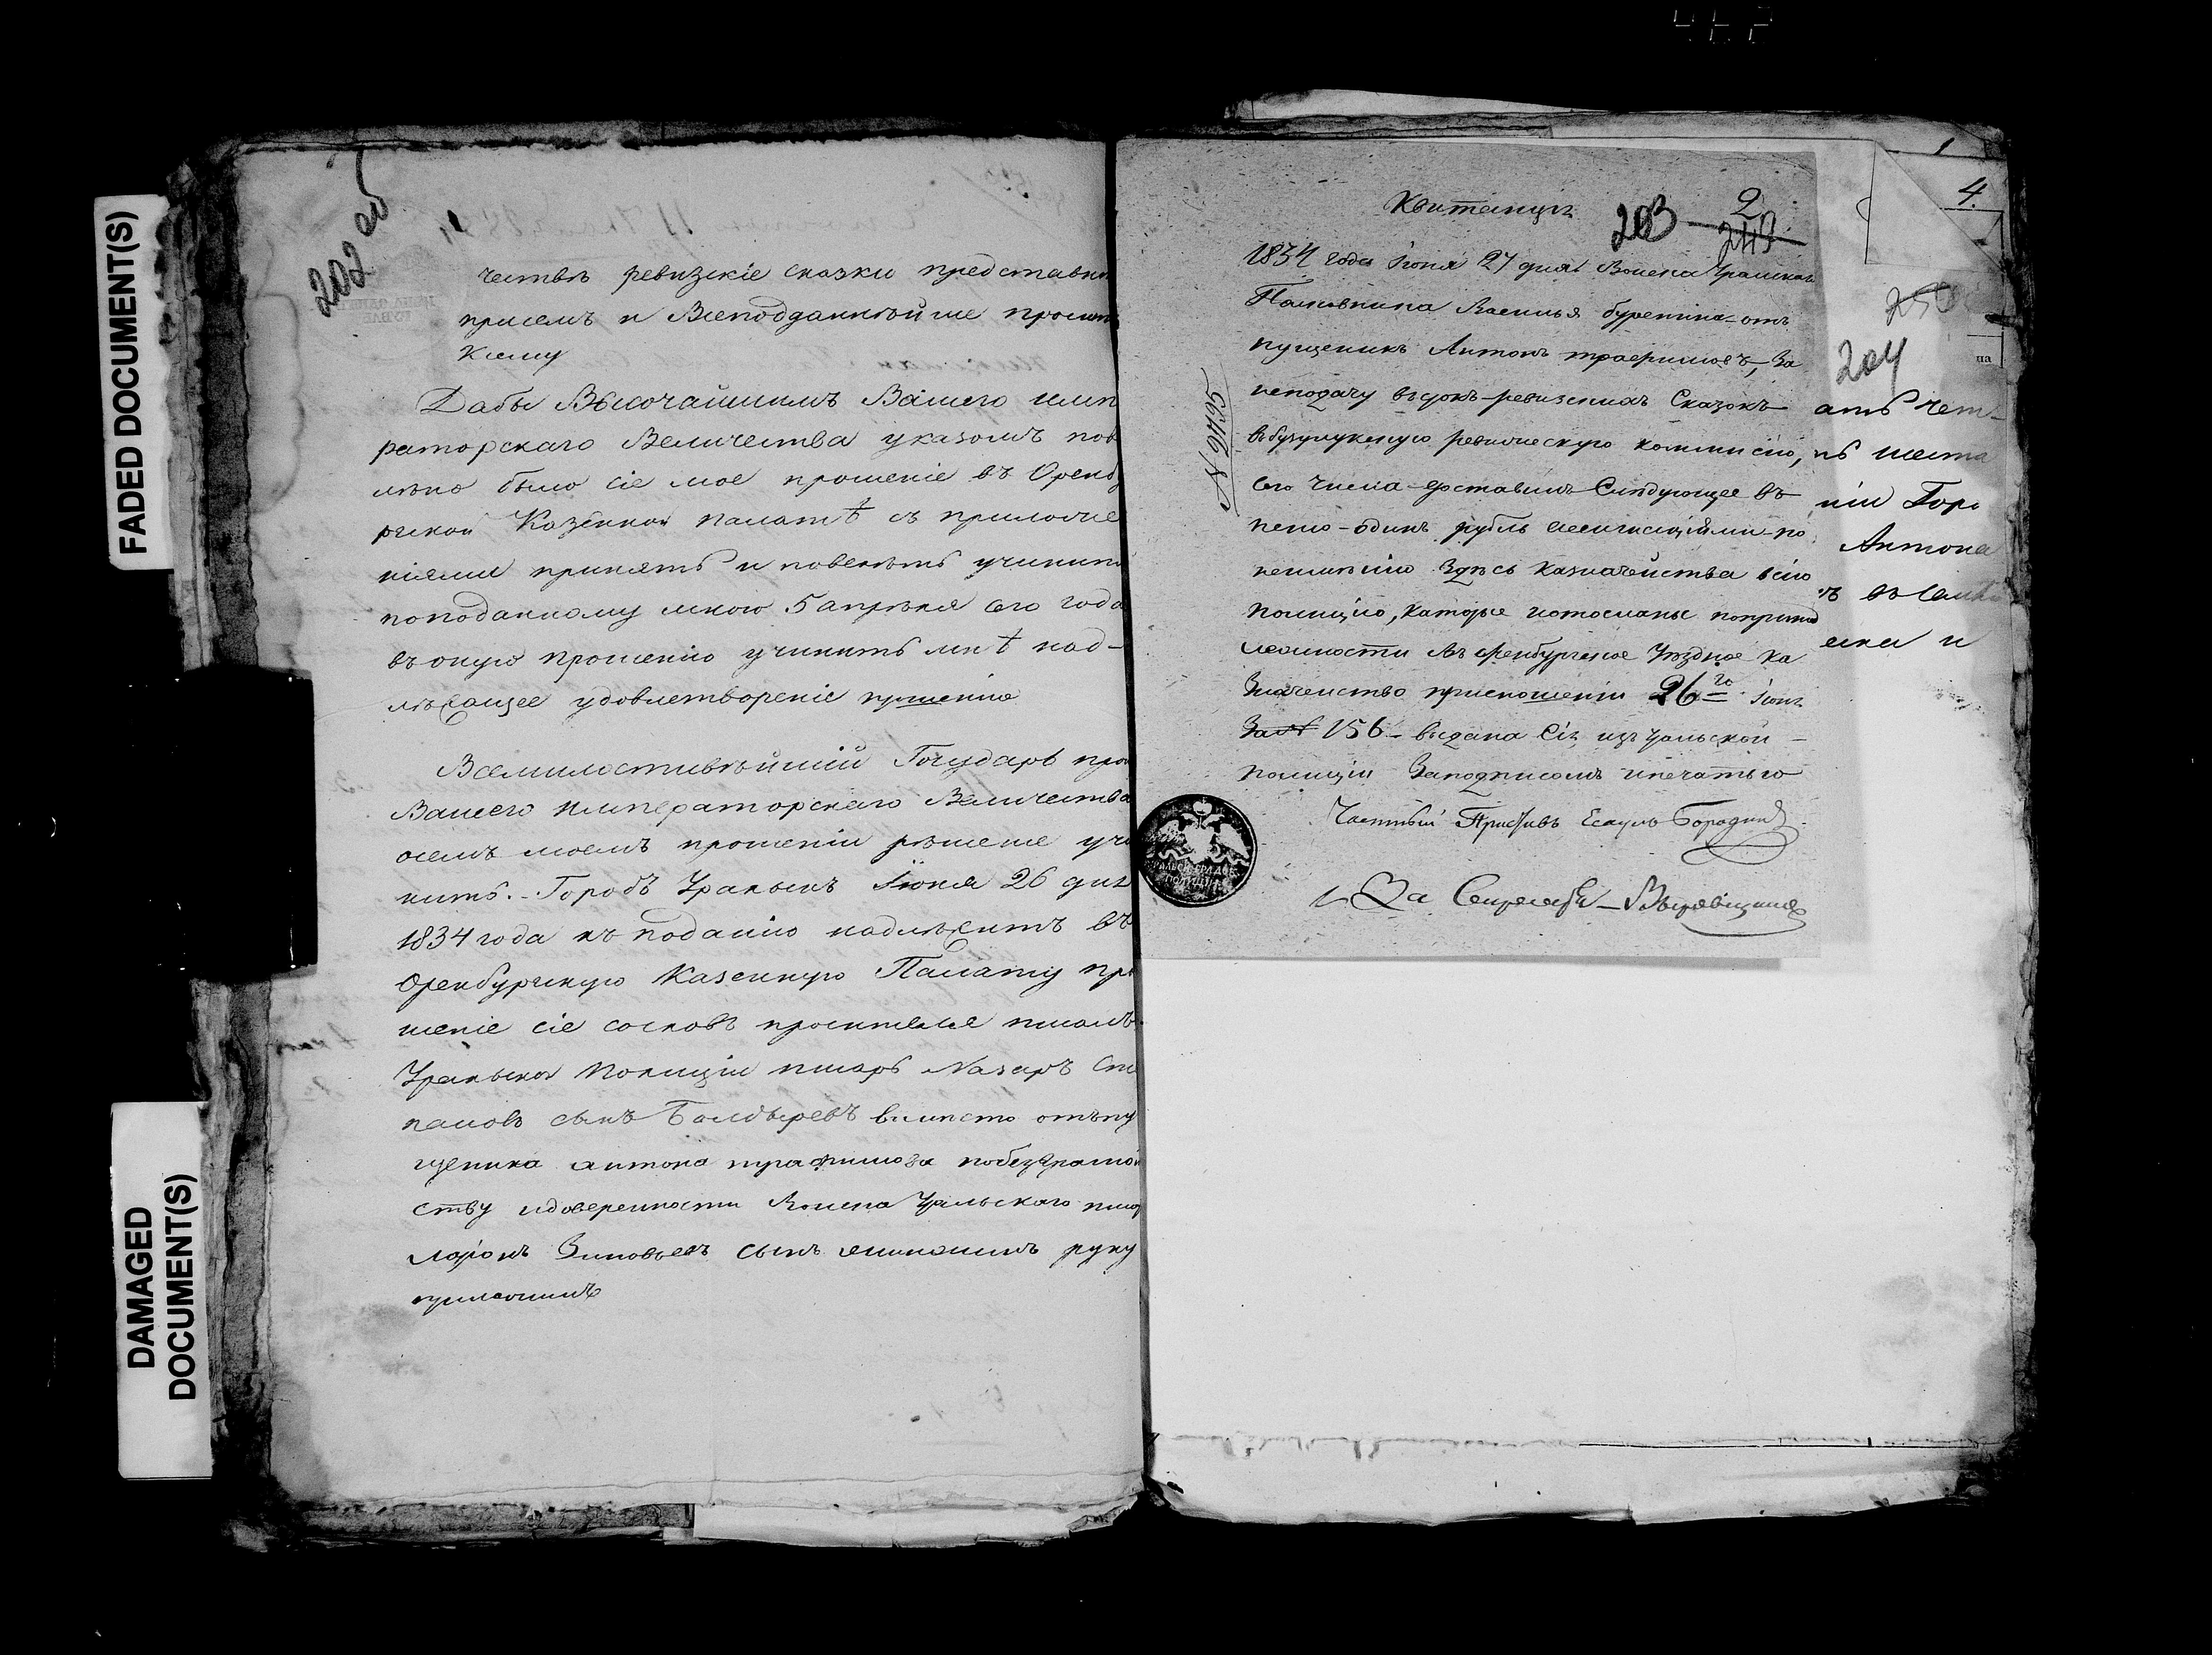 FADED DOCUMENT(S)
DAMAGED
DOCUMENT(S)
202 об
чествѣ ревизскіе сказки представи
приемъ и Всеподданнѣйше
к сему
Дабы Высочайшимъ Вашего имп
раторскаго Величества указомъ пов
лѣно было сіе мое прошеніе въ Оренбу
ргской Казенной палатѣ съ приложе
ніями принять и повелѣть учинить
поподанному мною 5 апрѣля сего года
въ оную прошенію учинить мнѣ над-
лѣжащее удовлетвореніе
Всемилостивѣйшій Государь про
Вашего императорскаго Величества
осемъ моемъ прошеніи рѣшеніе учи
нить. - Городъ Уральскъ Іюня 26 дня
1834 года къ поданію надлѣжитъ въ
Оренбургскую Казенную Палату пр
шеніе сіе сословъ просителя писалъ
Уральской Полиціи писарь Назаръ Сте
пановъ сынъ Болдыревъ вмѣсто отпу
щеника антона трафимова побезграмо
ству идоверенности Воиска Уральскаго
Зиновьевъ сынъ руку
приложилъ
Квитанція
203 2
243
1834 года Іюня 27 дня Воиска Уральскаго
Полковника Василья бурепина от
пущеникъ Антонъ трафимовъ, За
неподачу въсрокъ ревизскихъ Сказокъ
въбузулукскую ревизскую коммисію,
сего числа доставилъ Следующее въ
пеню - одинъ рубль ассигнаціями по
неимѣнію Здѣсь казначейства всію
полицію, которые иотосланы попринад
лежности въ Оренбургское Уѣздное ка
Значейство приотношеніи 26го Іюня
За № 156 - выдана Сія изъ Уральской -
полиціи Заподписомъ ипечатью
Частный Приставъ Есаулъ Бородинъ
За Секретаря
N 2495
4.
204
ать чет-
шеста
ніи Горо
Антона